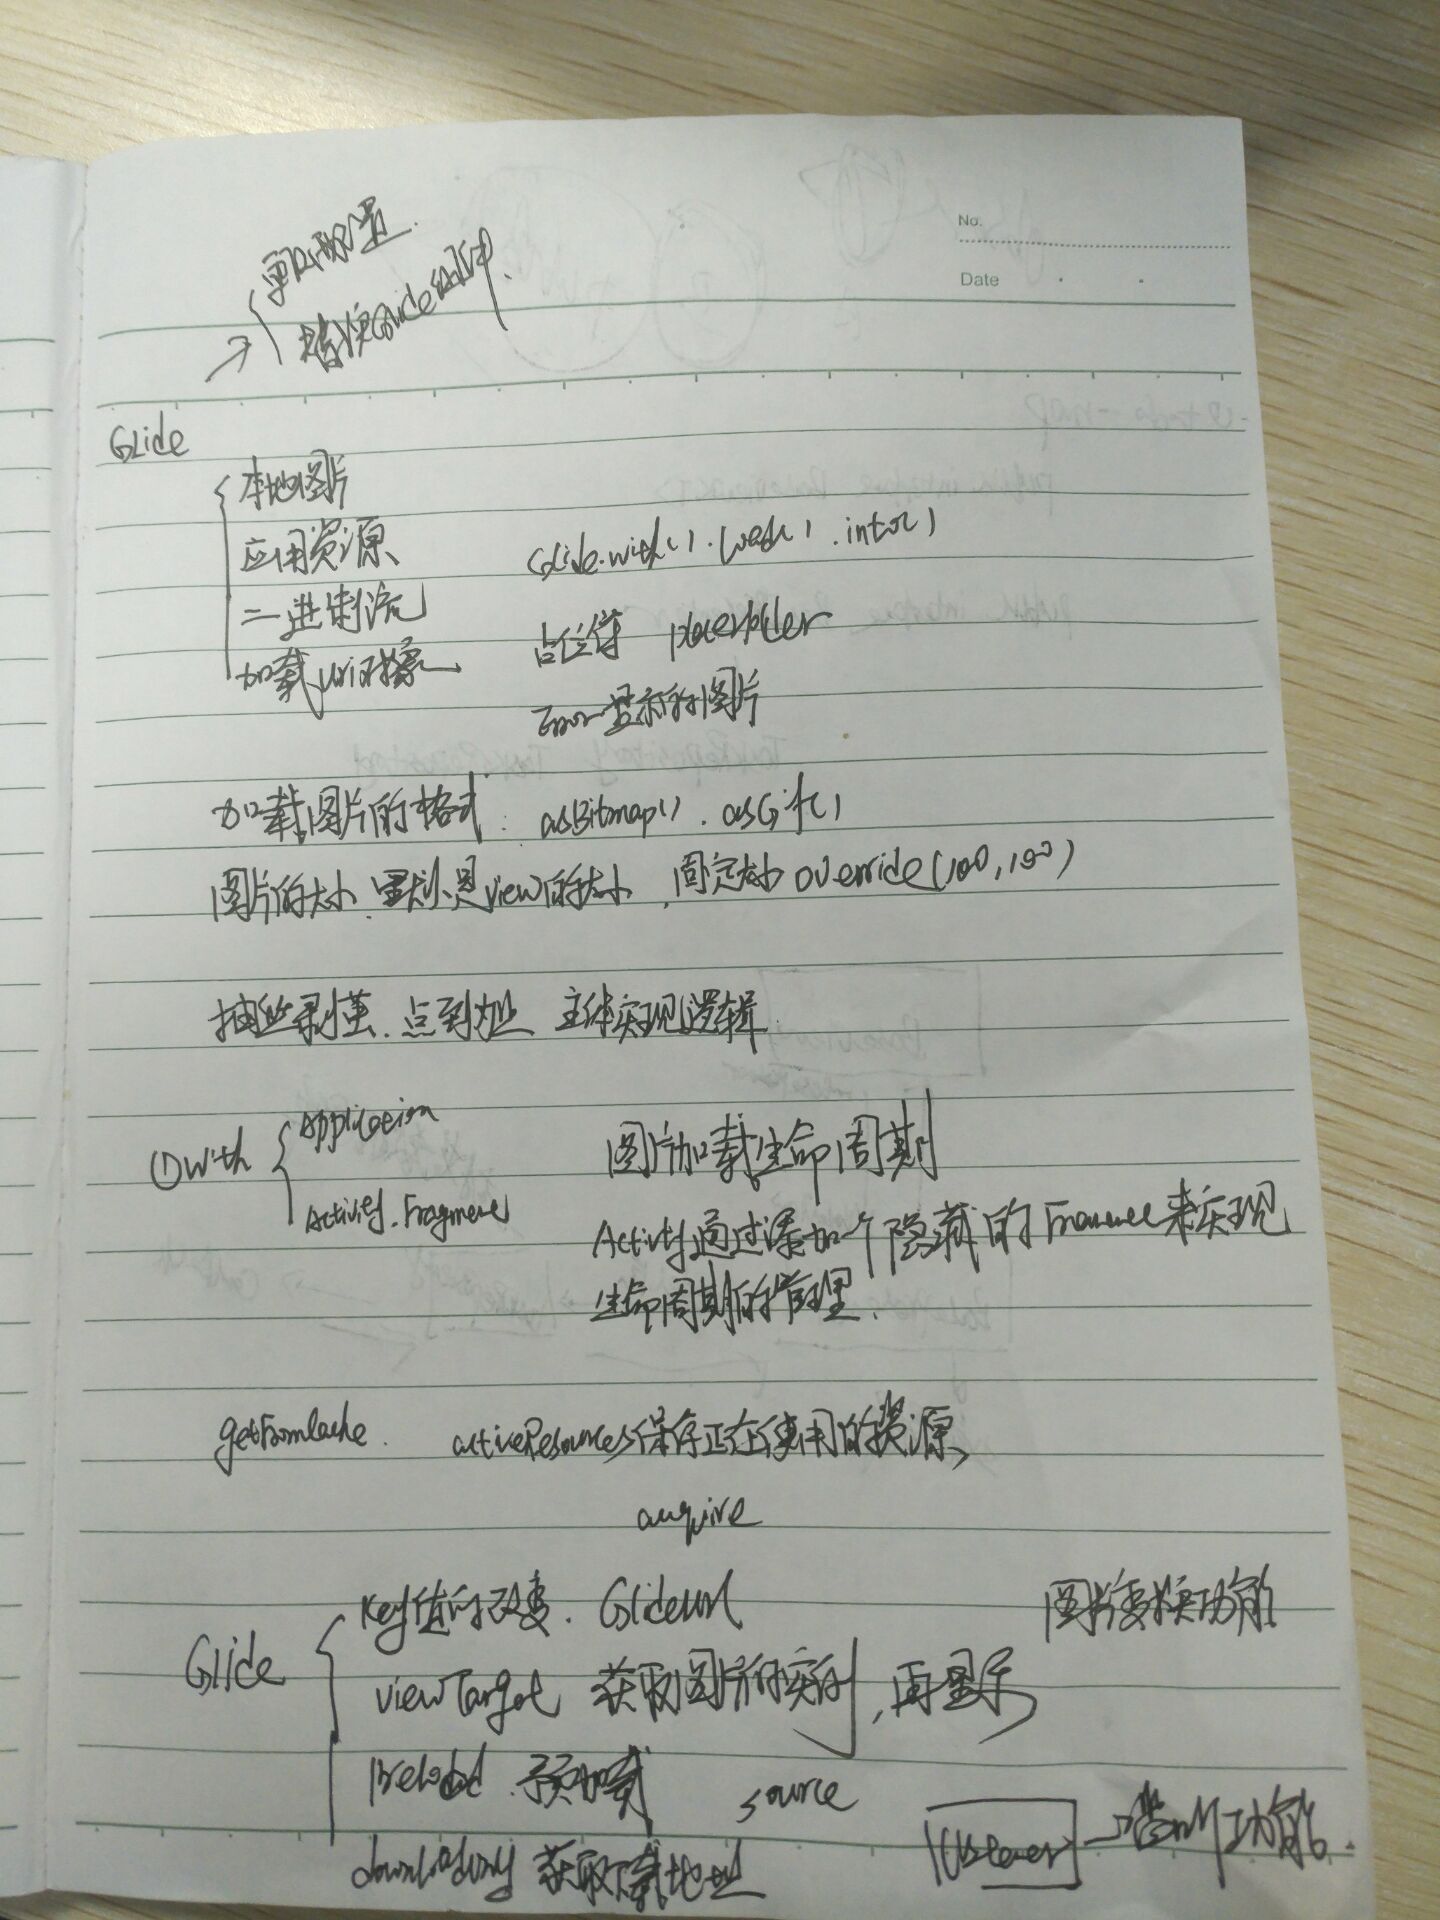 No.
Date
更改配置.
替换Glide组件.
Glide
本地图片
应用资源
二进制流
加载uri对象
Glide.with().load().into()
占位符 placeholder
Error显示的图片
加载图片的格式. asBitmap(). asGif()
图片的大小.默认是view的大小,固定大小override(100,100)
抽丝剥茧.点到为止 主体实现逻辑.
①with
Application
Activity.Fragment
图片加载生命周期
Activity通过添加一个隐藏的 来实现
生命周期的管理.
getFromCache. activeResources保存正在使用的资源
acquire
Glide
Key值的改变. GlideUrl
图片变换功能
viewTarget 获取图片的实例,再显示
Preload.预加载
source
listener → 功能.
downloadonly 获取下载地址